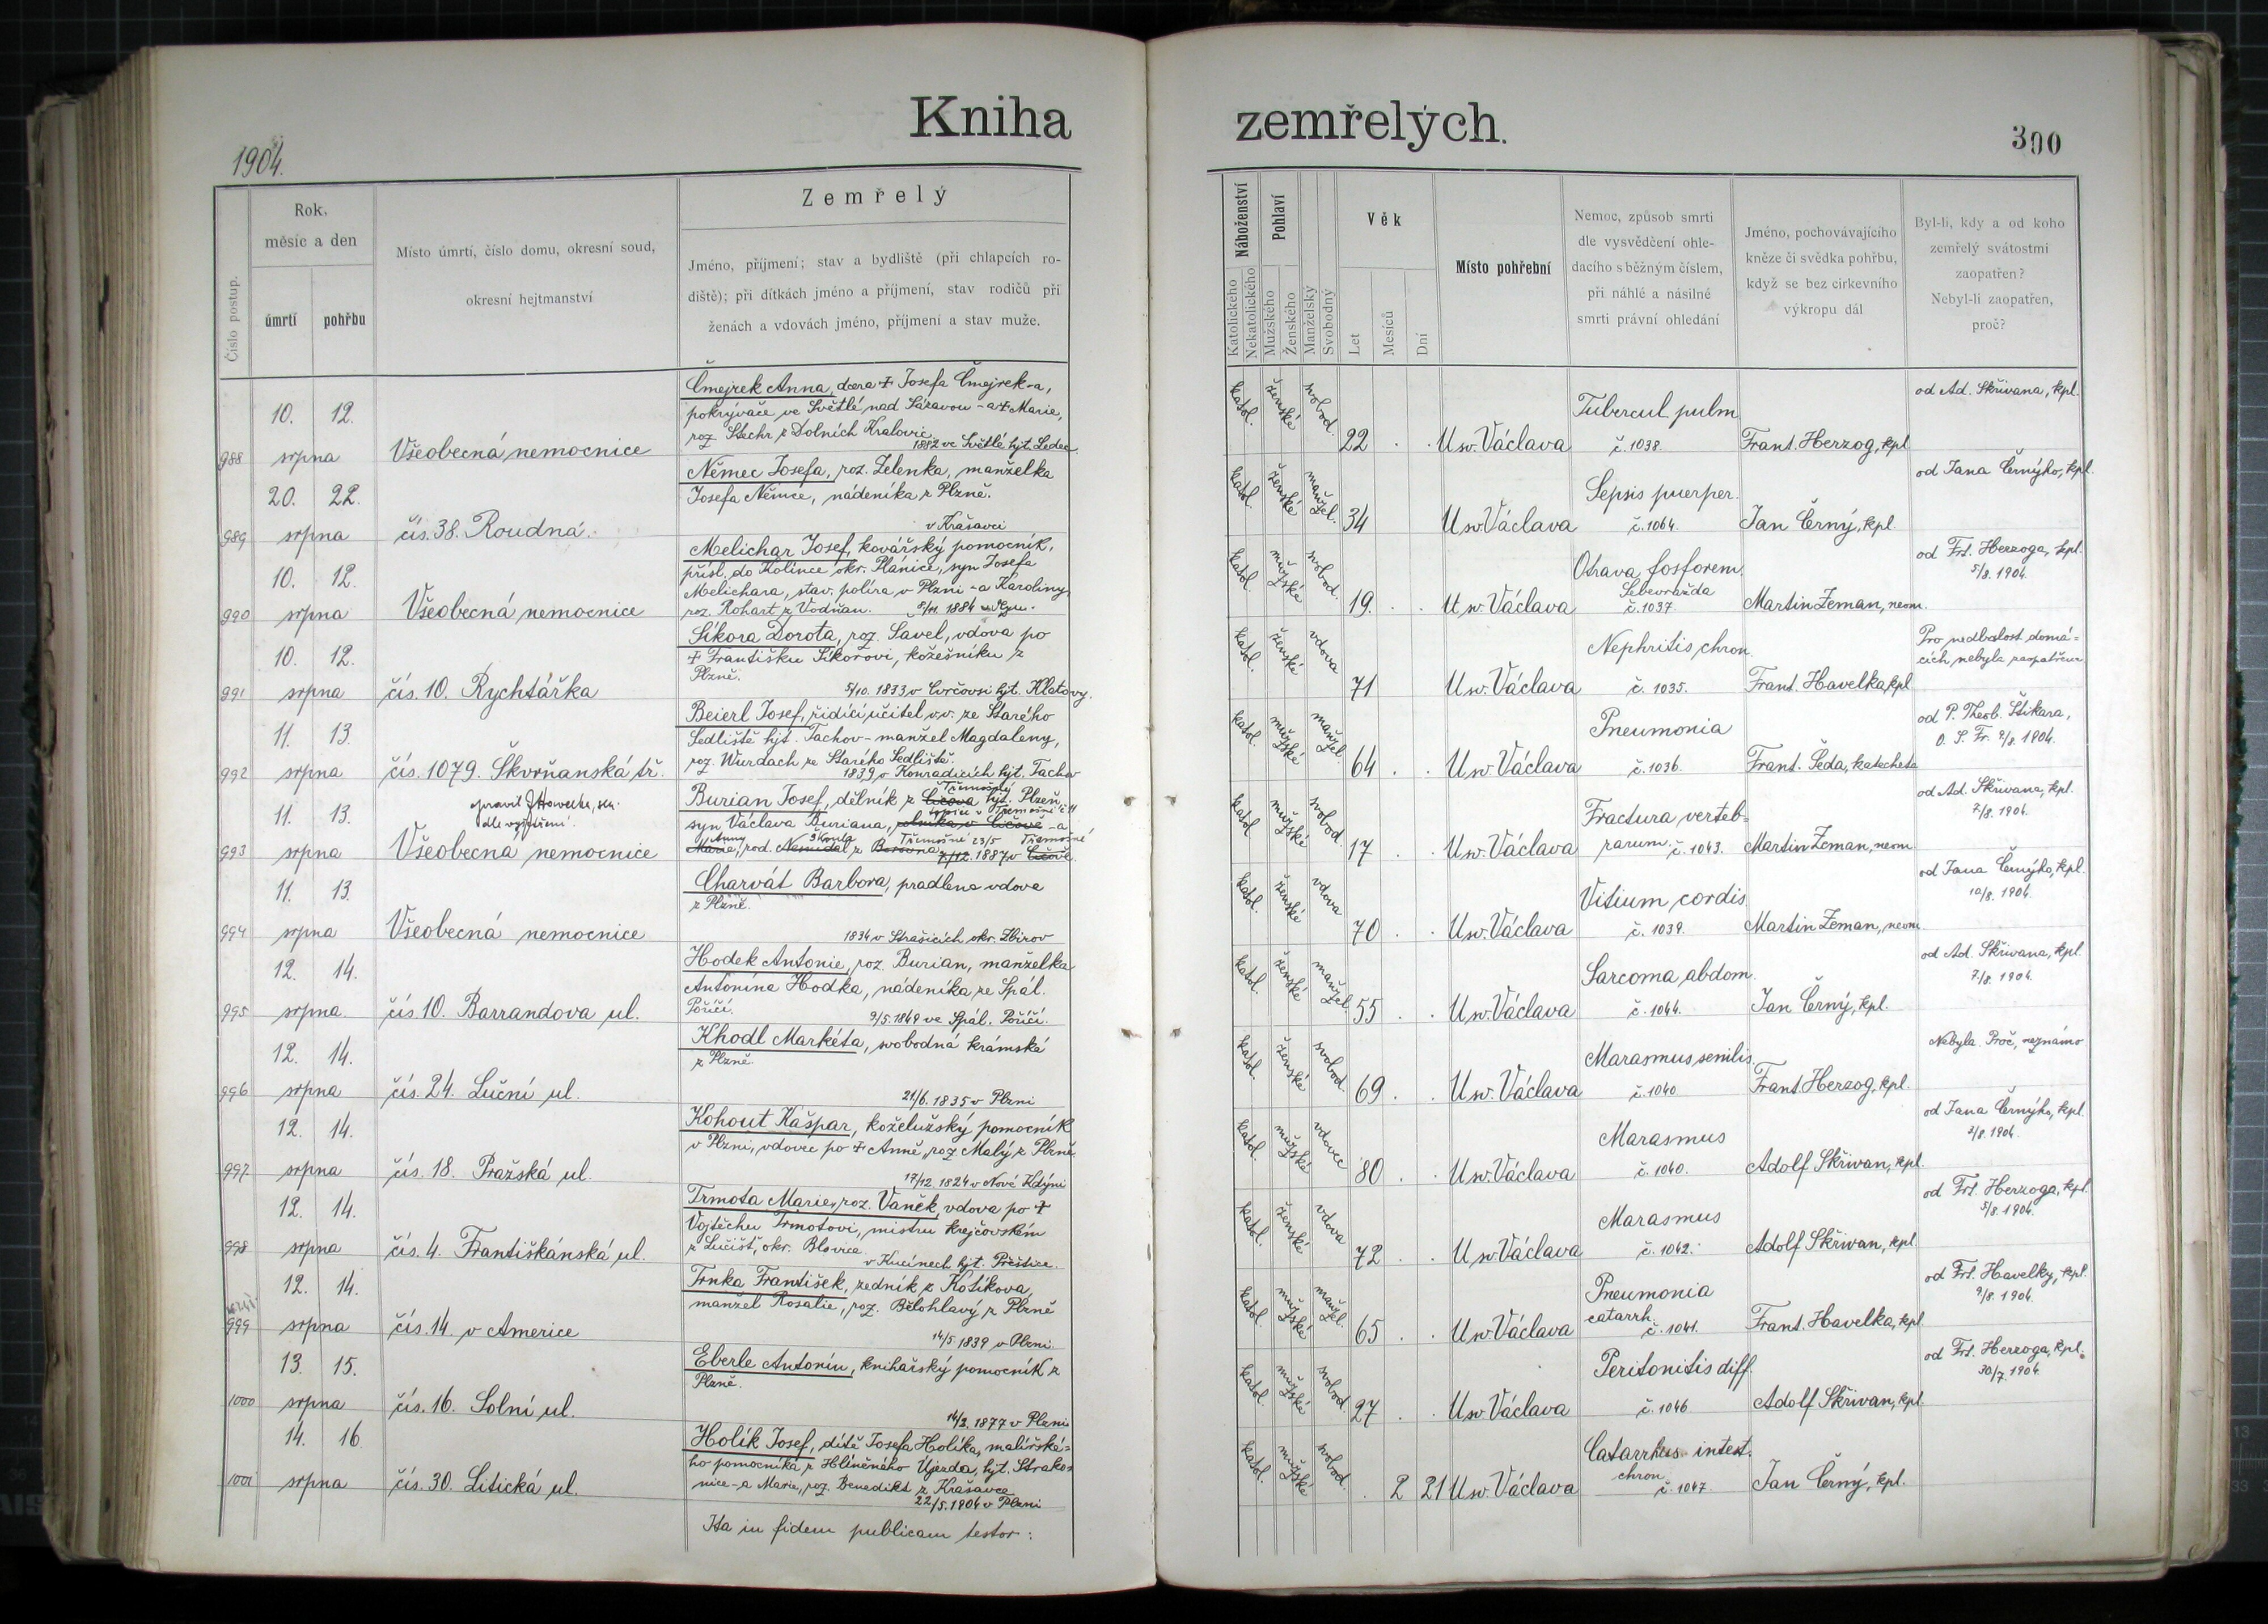 Kniha
zemřelých.
1904.
300
Číslo postup.
Rok,
měsíc a den
úmrtí
pohřbu
Místo úmrtí, číslo domu, okresní soud,
okresní hejtmanství
Zemřelý
Jméno, příjmení; stav a bydliště (při chlapcích ro-
diště); při dítkách jméno a příjmení, stav rodičů při
ženách a vdovách jméno, příjmení a stav muže.
Náboženství
Katolického
Nekatolického
Pohlaví
Mužského
Ženského
Manželský
Svobodný
Věk
Let
Měsíců
Dní
Místo pohřební
Nemoc, způsob smrti
dle vysvědčení ohle-
dacího s běžným číslem,
při náhlé a násilné
smrti právní ohledání
Jméno, pochovávajícího
kněze či svědka pohřbu,
když se bez církevního
výkropu dál
Byl-li, kdy a od koho
zemřelý svátostmi
zaopatřen?
Nebyl-li zaopatřen,
proč?
988 10. 12. srpna Všeobecná nemocnice
Čmejrek Anna, dcera + Josefa Čmejrek-a,
pokrývače ve Světlé nad Sázavou - a + Marie,
roz. Stechr z Dolních Kralovic.
1882 ve Světlé hjt. Ledec.
katol. ženské svobod. 22 U sv. Václava
Tubercul. pulm.
č. 1038.
Frant. Herzog, kpl.
od Ad. Skřivana, kpl.
989 20. 22. srpna čís. 38. Roudná.
Němec Josefa, roz. Zelenka, manželka
Josefa Němce, nádeníka z Plzně.
v Krašovci
katol. ženské manžel. 34 U sv. Václava
Sepsis puerper.
č. 1064.
Jan Černý, kpl.
od Jana Černýho, kpl.
990 10. 12. srpna Všeobecná nemocnice
Melichar Josef, kovářský pomocník,
přísl. do Kolince okr. Plánice, syn Josefa
Melichara, stav. políra v Plzni - a Karoliny,
roz. Rohart z Vodňan.
1884
katol. mužské svobod. 19. U sv. Václava
Otrava fosforem.
Sebevražda
č. 1037.
Martin Zeman, neom.
od Frt. Herzoga, kpl.
5/8. 1904.
991 10. 12. srpna čís. 10. Rychtářka
Síkora Dorota, roz. Savel, vdova po
+ Františku Síkorovi, kožešníku z
Plzně.
5/10. 1833 v hjt. Klatovy.
katol. ženské vdova 71 U sv. Václava
Nephritis chron.
č. 1035.
Frant. Havelka, kpl.
Pro nedbalost domá=
cích nebyla zaopatřena
992 11. 13. srpna čís. 1079. Škvrňanská tř.
Beierl Josef, řídící učitel v. v. ze Starého
Sedliště hjt. Tachov - manžel Magdaleny,
roz. Wurdach ze Starého Sedliště.
1839 v Konradicích hjt. Tachov
katol. mužské manžel. 64 U sv. Václava
Pneumonia
č. 1036.
Frant. Šeda, katecheta
od P. Theob. Štikara,
O. S. Fr. 9/8. 1904.
993 11. 13. srpna Všeobecná nemocnice
Burian Josef, dělník z Čičova hjt. Plzeň,
Třemošný
syn Václava Buriana, rolníka v Čičově - a
v Třemošné č. 11
Marie, rod. Nesnídal z Borovna 7/12. 1887 v Čičově
Anny Škorda Třemošné 23/5 Třemošné
katol. mužské svobod. 17 U sv. Václava
Fractura verteb=
rarum. č. 1043.
Martin Zeman, neom.
od Ad. Skřivana, kpl.
7/8. 1904.
994 11. 13. srpna Všeobecná nemocnice
Charvát Barbora, pradlena vdova
z Plzně.
1834 v Strašicích okr. Zbirov
katol. ženské vdova 70 U sv. Václava
Vitium cordis
č. 1039.
Martin Zeman, neom.
od Jana Černýho, kpl.
10/8. 1904.
995 12. 14. srpna čís. 10. Barrandova ul.
Hodek Antonie, roz. Burian, manželka
Antonína Hodka, nádeníka ze Spál.
Poříčí.
9/5. 1849 ve Spál. Poříčí.
katol. ženské manžel. 55 U sv. Václava
Sarcoma abdom.
č. 1044.
Jan Černý, kpl.
od Ad. Skřivana, kpl.
7/8. 1904.
996 12. 14. srpna čís. 24. Luční ul.
Khodl Markéta, svobodná krámská
z Plzně.
21/6. 1835 v Plzni
katol. ženské svobod. 69 U sv. Václava
Marasmus senilis.
č. 1040
Frant. Herzog, kpl.
Nebyla. Proč, neznámo
997 12. 14. srpna čís. 18. Pražská ul.
Kohout Kašpar, koželužský pomocník
v Plzni, vdovec po + Anně, roz. Malý z Plzně
17/12. 1824 v Nové Kdýni
katol. mužské vdovec 80 U sv. Václava
Marasmus
č. 1040.
Adolf Skřivan, kpl.
od Jana Černýho, kpl.
3/8. 1904.
998 12. 14. srpna čís. 4. Františkánská ul.
Trmota Marie, roz. Vaněk, vdova po +
Vojtěchu Trmotovi, mistru krejčovském
z Lučišť, okr. Blovice.
v Kucínech hjt. Přeštice.
katol. ženské vdova 72 U sv. Václava
Marasmus
č. 1042.
Adolf Skřivan, kpl.
od Frt. Herzoga, kpl.
5/8. 1904.
999 12. 14. srpna čís. 14. v Americe
Trnka František, zedník z Kotíkova,
manžel Rosalie, roz. Bělohlavý z Plzně
14/5. 1839 v Plzni.
katol. mužské manžel. 65 U sv. Václava
Pneumonia
catarrh.
č. 1041.
Frant. Havelka, kpl.
od Frt. Havelky, kpl.
9/8. 1904.
1000 13. 15. srpna čís. 16. Solní ul.
Eberle Antonín, knihařský pomocník z
Plzně.
14/3. 1877 v Plzni
katol. mužské svobod. 27 U sv. Václava
Peritonitis diff.
č. 1046
Adolf Skřivan, kpl.
od Frt. Herzoga, kpl.
30/7. 1904.
1001 14. 16. srpna čís. 30. Litická ul.
Holík Josef, dítě Josefa Holíka, malířské=
ho pomocníka z Hliněného Újezda, hjt. Strako=
nice - a Marie, roz. Benedikt z Krašovce
22/5. 1904 v Plzni
katol. mužské svobod. 2 21 U sv. Václava
Catarrhus intest.
chron.
č. 1047.
Jan Černý, kpl.
Ita in fidem publicam testor: